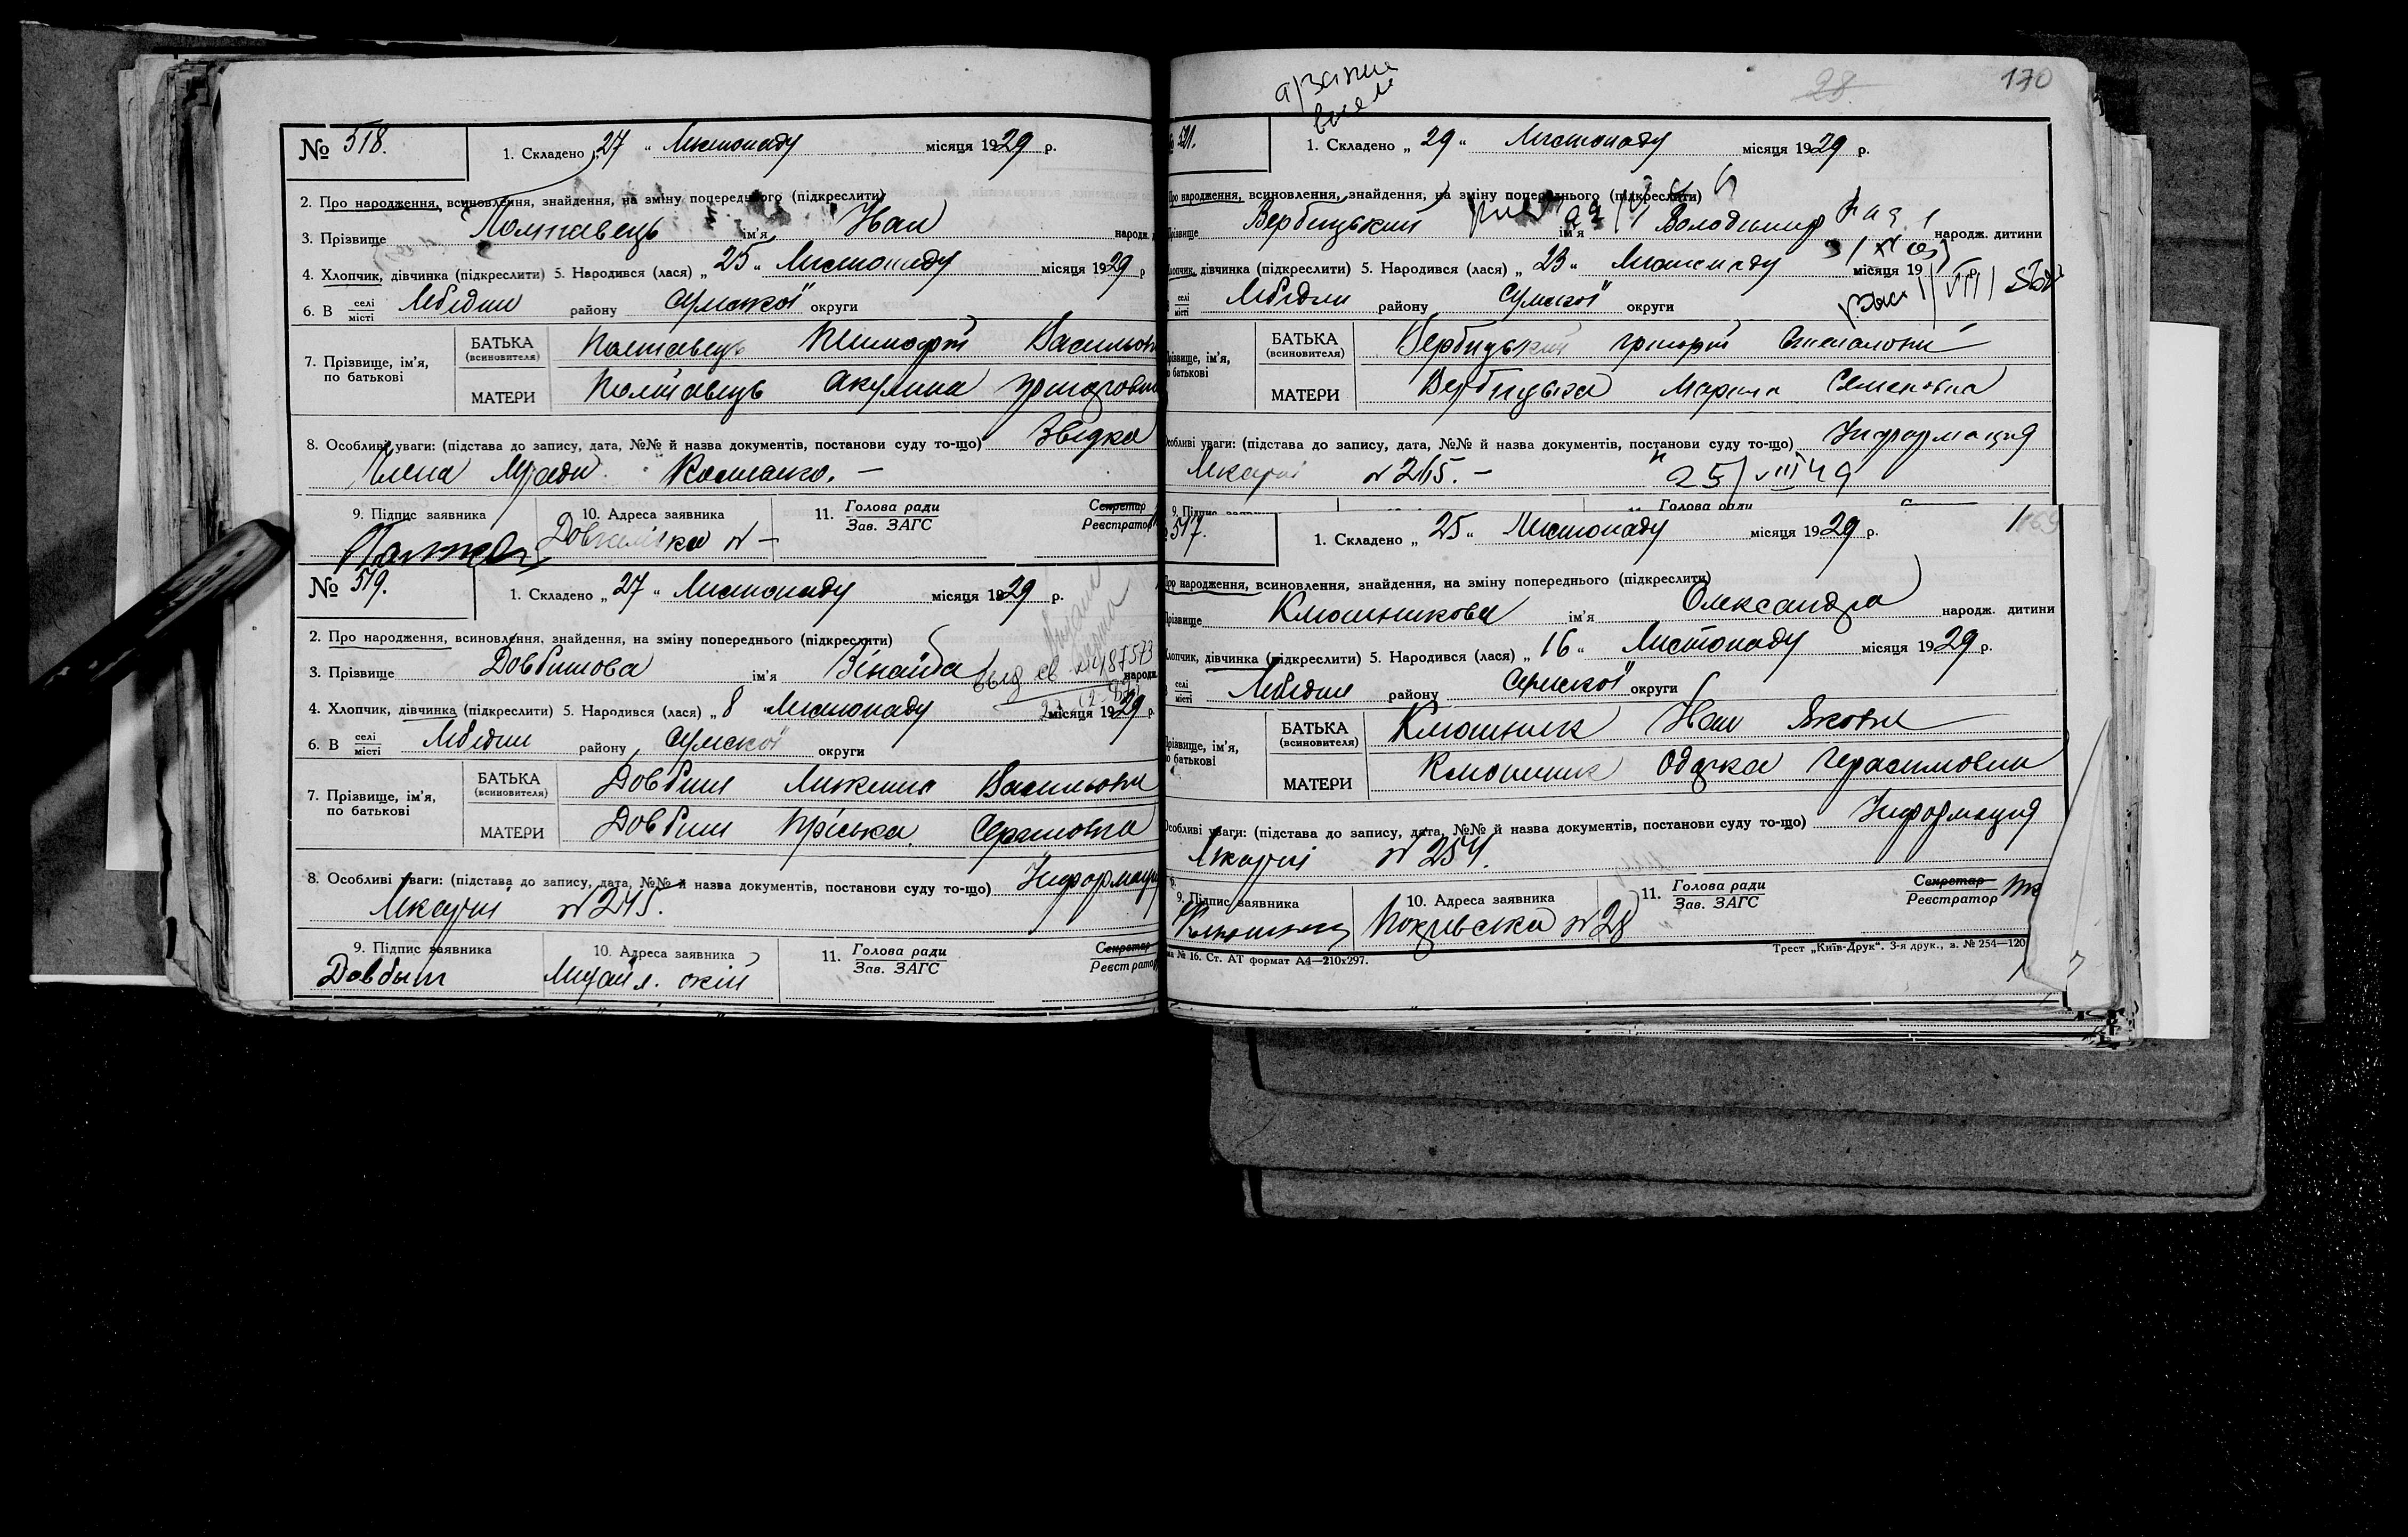 № 518. 1. Складено „27“ Листопаду місяця 1929 р.
2. Про народження, всиновлення, знайдення, на зміну попереднього (підкреслити)
3. Прізвище Полтавець ім'я Иван народж.
4. Хлопчик, дівчинка (підкреслити) 5. Народився (лася) „25“ Листопаду місяця 1929 р
6. В селі місті Лебедин району Сумської округи
7. Прізвище, ім'я, по батькові
БАТЬКА (всиновителя) Полтавець Тимофій Васильови
МАТЕРИ Полтавець Акулина Григоровн
8. Особливі уваги: (підстава до запису, дата, №№ й назва документів, постанови суду то-що) Звідка
члена М/ради
9. Підпис заявника 10. Адреса заявника 11. Голова ради Зав. ЗАГС Секретар Реєстратор
№ 519. 1. Складено „27“ Листопаду місяця 1929 р.
2. Про народження, всиновлення, знайдення, на зміну попереднього (підкреслити)
3. Прізвище Довбишова ім'я Зінаїда народж
выд св № 487573
4. Хлопчик, дівчинка (підкреслити) 5. Народився (лася) „8“ Листопаду місяця 1929 р
6. В селі місті Лебедин району Сумської округи
7. Прізвище, ім'я, по батькові
БАТЬКА (всиновителя) Довбиш Микита Васильови
МАТЕРИ Довбиш Пріська
8. Особливі уваги: (підстава до запису, дата, №№ й назва документів, постанови суду то-що) Информаци
Лікарні № 245.
9. Підпис заявника 10. Адреса заявника 11. Голова ради Зав. ЗАГС Секретар Реєстратор
Довбыш
28 170
№ 521. 1. Складено „29“ Листопаду місяця 1929 р.
Про народження, всиновлення, знайдення, на зміну попереднього (підкреслити)
Прізвище Вербицький ім'я Володимир народж. дитини
Хлопчик, дівчинка (підкреслити) 5. Народився (лася) „23“ Листопаду місяця 19 р.
селі місті Лебедин району Сумської округи
Прізвище, ім'я, по батькові
БАТЬКА (всиновителя) Вербицький Григорій Степанович
МАТЕРИ Вербицька Мария Семеновна
Особливі уваги: (підстава до запису, дата, №№ й назва документів, постанови суду то-що) Информация
Лікарні № 265. 25/VIII 49
9. Підпис заявн Голова ради
517. 1. Складено „25“ Листопаду місяця 1929 р.
Про народження, всиновлення, знайдення, на зміну попереднього (підкреслити)
Прізвище Клюшникова ім'я Олександра народж. дитини
Хлопчик, дівчинка (підкреслити) 5. Народився (лася) „16“ Листопаду місяця 1929 р.
селі місті Лебедин району Сумської округи
Прізвище, ім'я, по батькові
БАТЬКА (всиновителя) Клюшник Иван Якович
МАТЕРИ Клюшник Одарка Герасимовна
Особливі уваги: (підстава до запису, дата, №№ й назва документів, постанови суду то-що) Информация
Лікарні № 254.
9. Підпис заявника 10. Адреса заявника 11. Голова ради Зав. ЗАГС Секретар Реєстратор
Покрівська № 28
№ 16. Ст. АТ формат А4—210х297. Трест „Київ-Друк“. 3-я друк., з. № 254—120